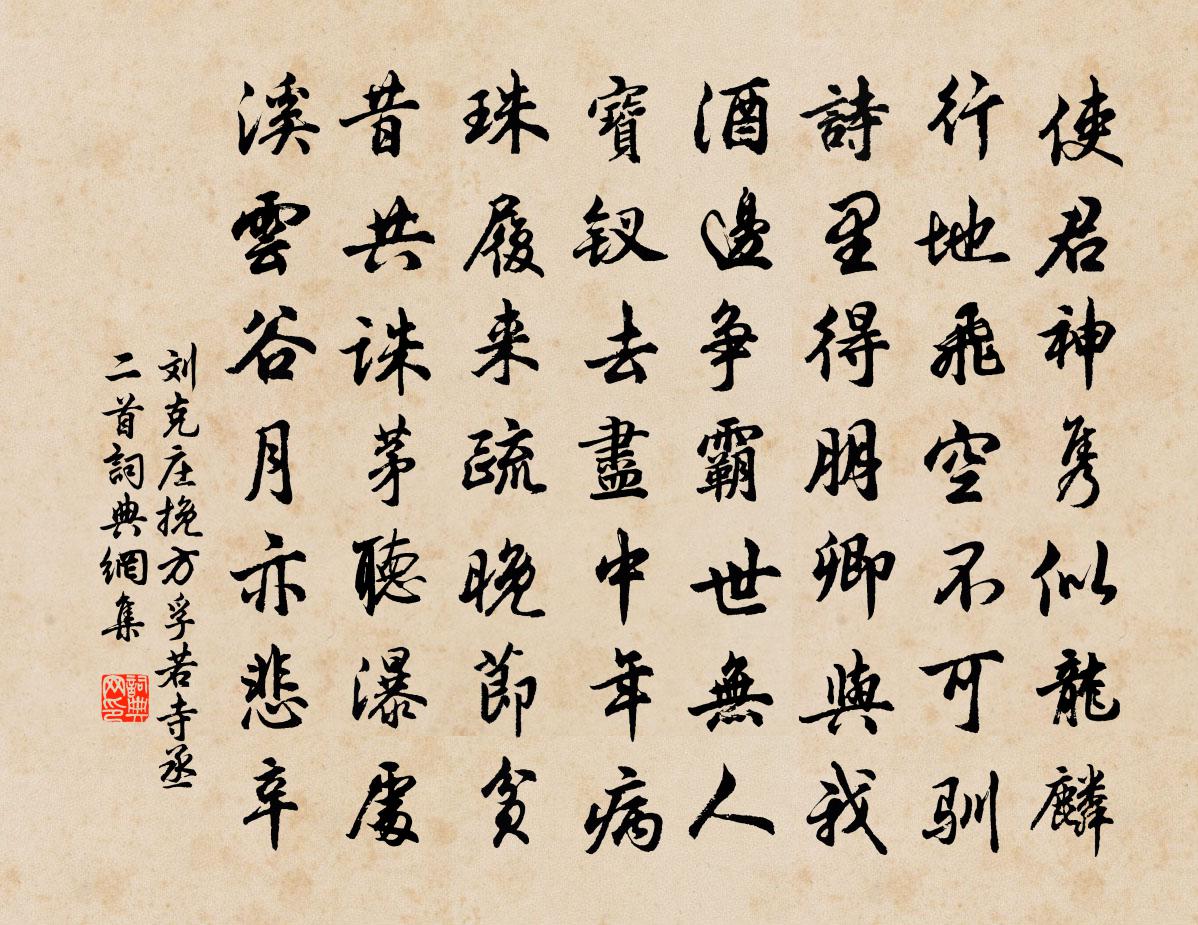 使君神隽似龍麟
行地飛空不可馴
詩里得朋卿與我
酒邊爭霸世無人
寶釵去盡中年病
珠履來疏晚節貧
昔共誅茅聽瀑處
溪雲谷月亦悲辛
刘克庄挽方孚若寺丞
二首詞典網集
詞典
网印